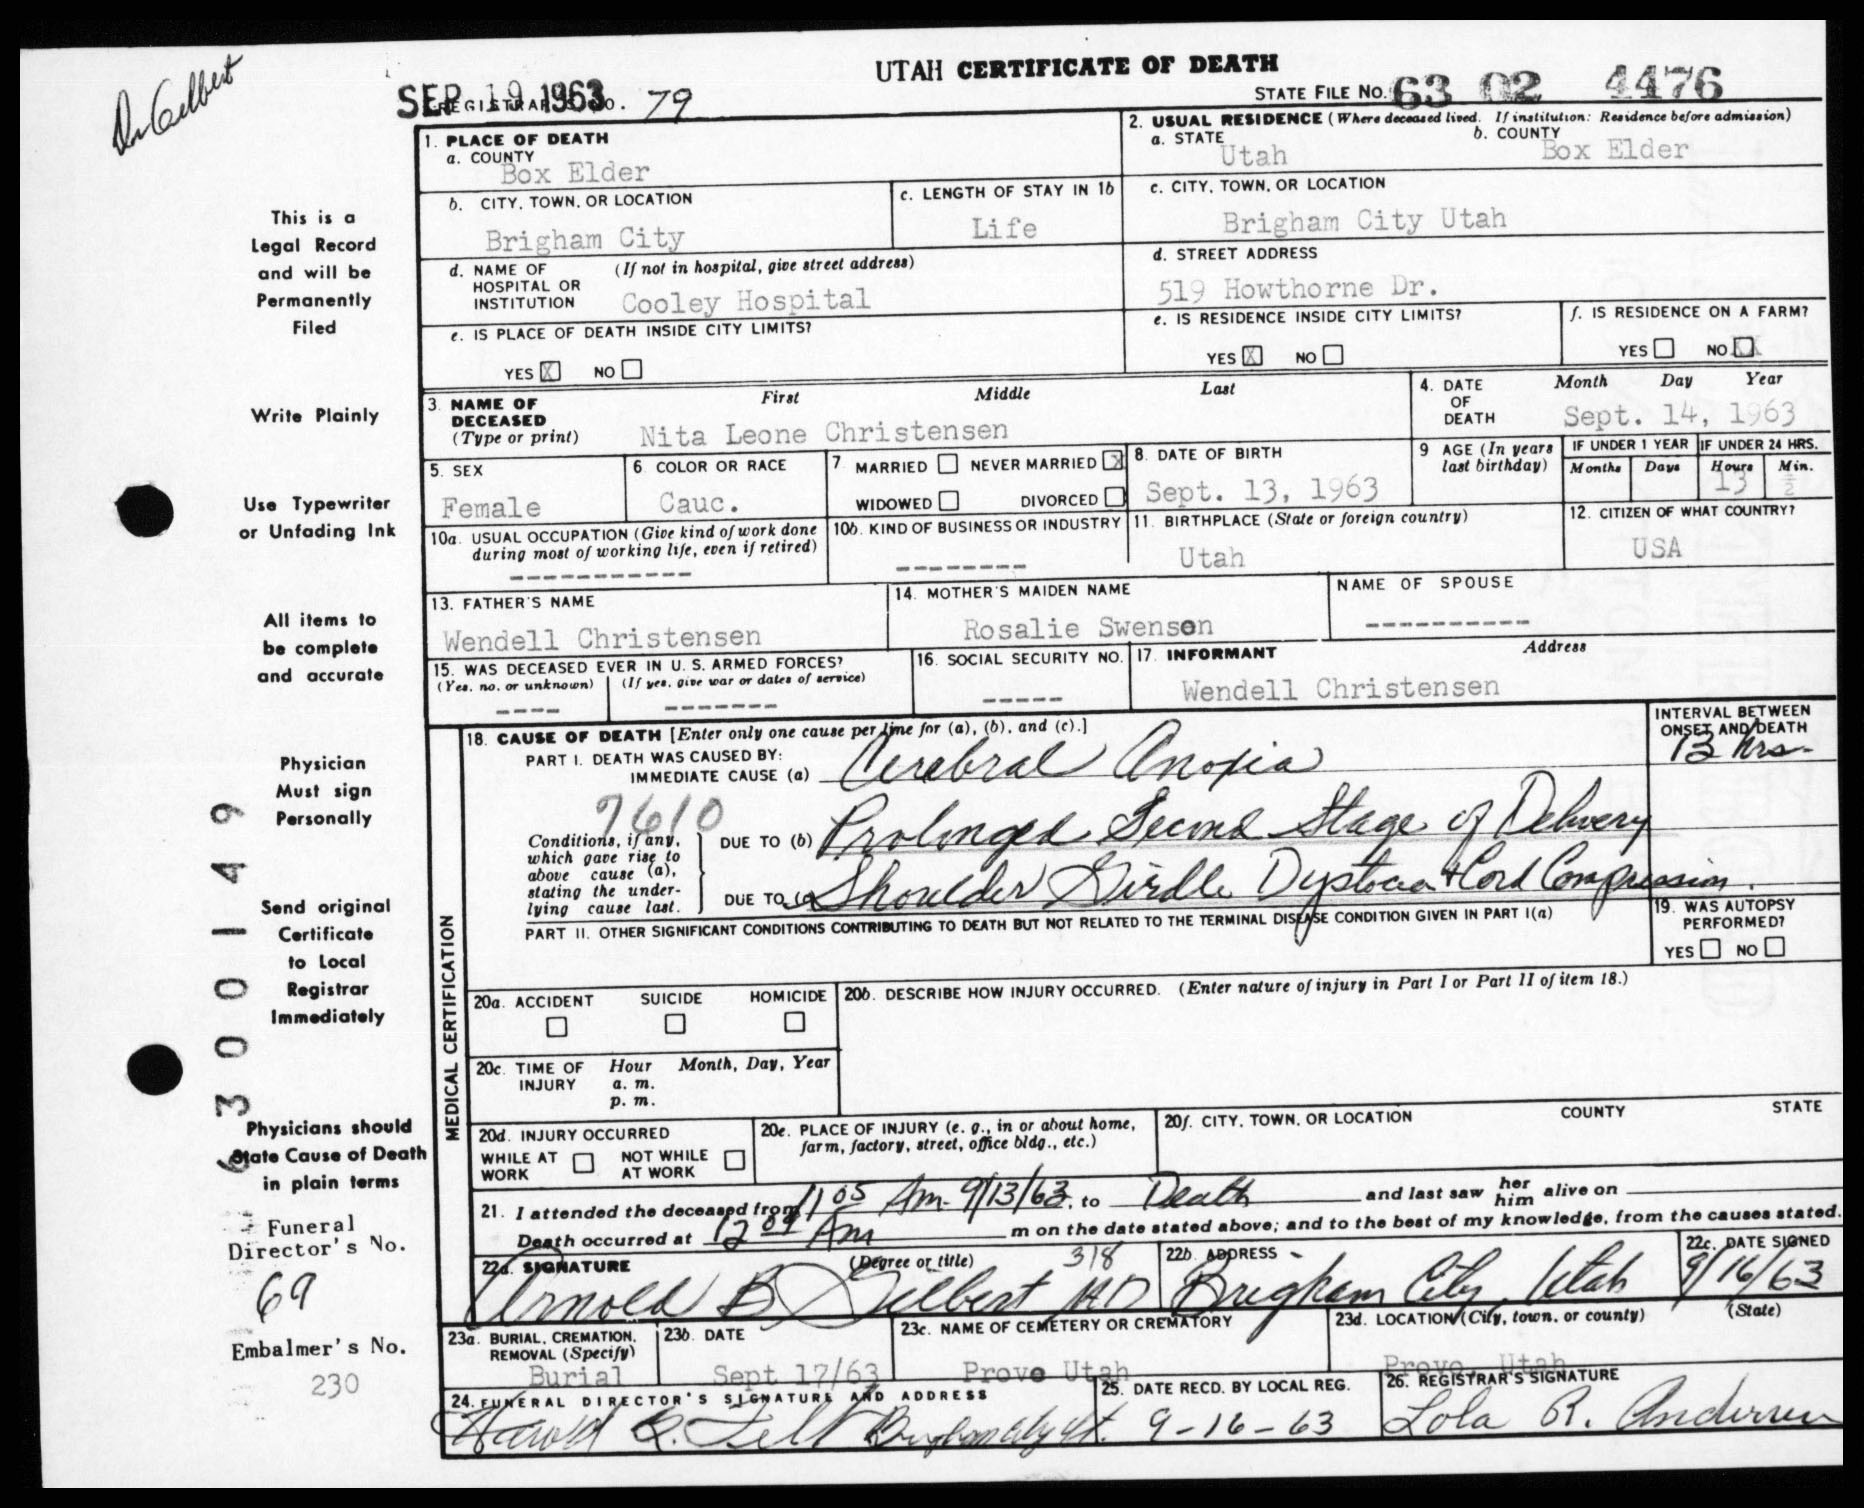 Dr Gilbert
UTAH CERTIFICATE OF DEATH
SEP 19 1963
REGISTRAR'S NO. 79
STATE FILE NO. 63 02 4476
1. PLACE OF DEATH
a. COUNTY
Box Elder
2. USUAL RESIDENCE (Where deceased lived. If institution: Residence before admission)
a. STATE
Utah
b. COUNTY
Box Elder
b. CITY, TOWN, OR LOCATION
Brigham City
c. LENGTH OF STAY IN 1b
Life
c. CITY, TOWN, OR LOCATION
Brigham City Utah
d. NAME OF HOSPITAL OR INSTITUTION
(If not in hospital, give street address)
Cooley Hospital
d. STREET ADDRESS
519 Howthorne Dr.
e. IS PLACE OF DEATH INSIDE CITY LIMITS?
YES X NO
e. IS RESIDENCE INSIDE CITY LIMITS?
YES X NO
f. IS RESIDENCE ON A FARM?
YES NO XX
3. NAME OF DECEASED
(Type or print)
First Middle Last
Nita Leone Christensen
4. DATE OF DEATH
Month Day Year
Sept. 14, 1963
5. SEX
Female
6. COLOR OR RACE
Cauc.
7. MARRIED NEVER MARRIED X
WIDOWED DIVORCED
8. DATE OF BIRTH
Sept. 13, 1963
9 AGE (In years last birthday)
IF UNDER 1 YEAR
Months Days
IF UNDER 24 HRS.
Hours Min.
13 ½
10a. USUAL OCCUPATION (Give kind of work done during most of working life, even if retired)
-----------
10b. KIND OF BUSINESS OR INDUSTRY
--------
11. BIRTHPLACE (State or foreign country)
Utah
12. CITIZEN OF WHAT COUNTRY?
USA
13. FATHER'S NAME
Wendell Christensen
14. MOTHER'S MAIDEN NAME
Rosalie Swenson
NAME OF SPOUSE
----------
15. WAS DECEASED EVER IN U. S. ARMED FORCES?
(Yes, no, or unknown) (If yes, give war or dates of service)
---- -------
16. SOCIAL SECURITY NO.
-----
17. INFORMANT Address
Wendell Christensen
MEDICAL CERTIFICATION
18. CAUSE OF DEATH [Enter only one cause per line for (a), (b), and (c).]
PART I. DEATH WAS CAUSED BY:
IMMEDIATE CAUSE (a) Cerebral Anoxia
INTERVAL BETWEEN ONSET AND DEATH
13 hrs.
7610
Conditions, if any, which gave rise to above cause (a), stating the underlying cause last.
DUE TO (b) Prolonged Second Stage of Delivery
DUE TO (c) Shoulder Girdle Dystocia + Cord Compression.
PART II. OTHER SIGNIFICANT CONDITIONS CONTRIBUTING TO DEATH BUT NOT RELATED TO THE TERMINAL DISEASE CONDITION GIVEN IN PART I(a)
19. WAS AUTOPSY PERFORMED?
YES NO
20a. ACCIDENT SUICIDE HOMICIDE
20b. DESCRIBE HOW INJURY OCCURRED. (Enter nature of injury in Part I or Part II of item 18.)
20c. TIME OF INJURY
Hour Month, Day, Year
a. m.
p. m.
20d. INJURY OCCURRED
WHILE AT WORK NOT WHILE AT WORK
20e. PLACE OF INJURY (e. g., in or about home, farm, factory, street, office bldg., etc.)
20f. CITY, TOWN, OR LOCATION COUNTY STATE
21. I attended the deceased from 11 05 Am. 9/13/63, to Death and last saw her him alive on
Death occurred at 12 09 Am m on the date stated above; and to the best of my knowledge, from the causes stated.
22a. SIGNATURE (Degree or title) 318
Arnold B Gilbert MD
22b. ADDRESS
Brigham City, Utah
22c. DATE SIGNED
9/16/63
23a. BURIAL, CREMATION, REMOVAL (Specify)
Burial
23b. DATE
Sept 17/63
23c. NAME OF CEMETERY OR CREMATORY
Provo Utah
23d. LOCATION (City, town, or county) (State)
Provo, Utah
24. FUNERAL DIRECTOR'S SIGNATURE AND ADDRESS
Harold B. Felt Brigham City Ut.
25. DATE RECD. BY LOCAL REG.
9-16-63
26. REGISTRAR'S SIGNATURE
Lola R. Andersen
This is a
Legal Record
and will be
Permanently
Filed
Write Plainly
Use Typewriter
or Unfading Ink
All items to
be complete
and accurate
Physician
Must sign
Personally
Send original
Certificate
to Local
Registrar
Immediately
Physicians should
State Cause of Death
in plain terms
Funeral
Director's No.
69
Embalmer's No.
230
6300149